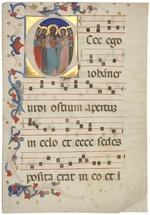 Cce ego
iohanes
uidi ostium apertum
in celo et ecce sedes
posita erat in eo et i